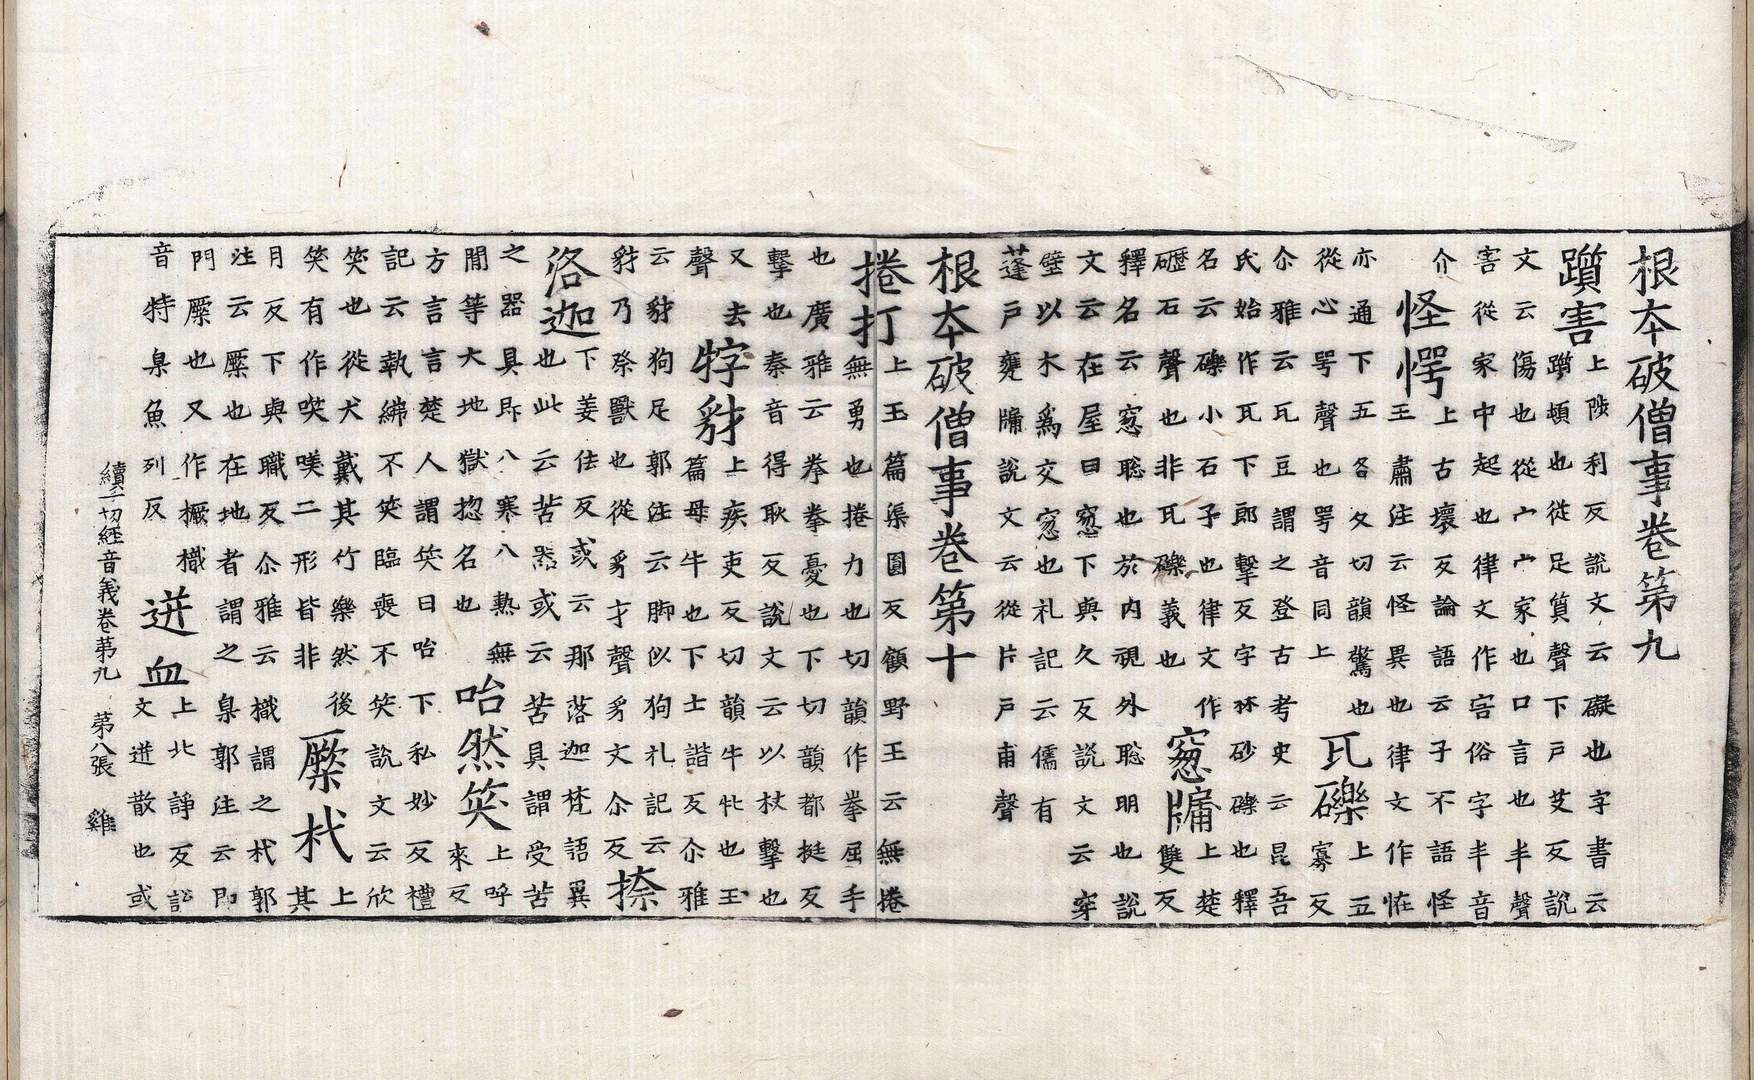 根本破僧事卷第九
躓害
上陟利反說文云礙也字書云
躓頓也從足質聲下戶艾反說
文云傷也從宀宀家也口言也丯聲
害從家中起也律文作𡧱俗字丯音
介
怪愕
上古壞反論語云子不語怪
王肅注云怪異也律文作恠
亦通下五各反切韻驚也
從心咢聲也咢音同上
瓦礫
上五
寡反
尒雅云瓦豆謂之登古考史云昆吾
氏始作瓦下郎擊反字林砂礫也釋
名云礫小石子也律文作
礰石聲也非瓦礫義也
窓牖
上楚
雙反
釋名云窓聰也於內視外聰明也說
文云在屋曰窓下與久反說文云穿
壁以木為交窓也礼記云儒有
蓬戶甕牖說文云從片戶甫聲
根本破僧事卷第十
捲打
上玉篇渠圓反顧野王云無捲
無勇也捲力也切韻作拳屈手
也廣雅云拳拳憂也下切韻都挺反
擊也秦音得耿反說文云以杖擊也
又去
聲
牸豺
上疾吏反切韻牛牝也玉
篇母牛也下士諧反尒雅
云豺狗足郭注云脚似狗礼記云
豺乃祭獸也從豸才聲豸文尒反
捺
洛迦
下姜佉反或云那落迦梵語異
也此云苦器或云苦具謂受苦
之器具即八寒八熱無
間等大地獄惣名也
咍然笑
上呼
來反
方言言楚人謂笑曰咍下私妙反禮
記云執紼不笑臨喪不笑說文云欣
笑也從犬戴其竹樂然後
笑有作唉𠸍二形皆非
橜杙
上
其
月反下與職反尒雅云樴謂之杙郭
注云橜也在地者謂之臬郭注云即
門橜也又作橛樴
音特臬魚列反
迸血
上北諍反說
文迸散也或
續一切經音義卷第九 第八張 雞